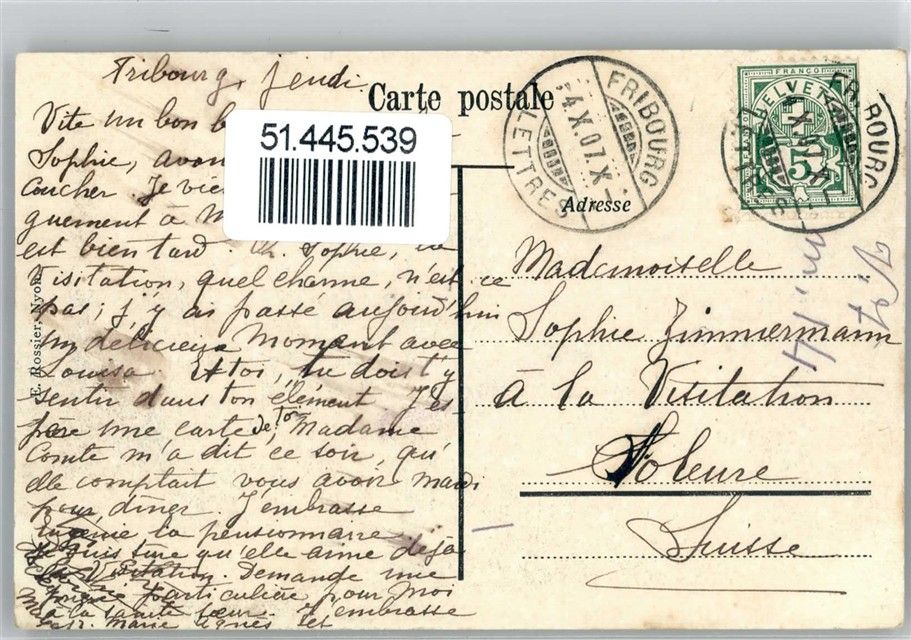 Fribourg, jeudi.
Carte postale
Vite un bon b
Sophie, avan
coucher. Je vie
guement à M
est bien tard. Sophie, la
Visitation, quel charme, n'est-ce
pas; j'y ai passé aujourd'hui
un délicieux moment avec
Louisa. Et toi, tu dois t'y
sentir dans ton élément. J'es-
père une carte de toi. Madame
Comte m'a dit ce soir, qu'
elle comptait vous avoir mardi
pour dîner. J'embrasse
Eugénie la pensionnaire
Je suis sûre qu'elle aime déjà
la Visitation. Demande une
particulière pour moi
à la sainte sœur. J'embrasse
Sr. Marie Agnès et
51.445.539
E. Rossier, Nyon
FRIBOURG
4.X.07.X-
LETTRES
Adresse
FRANCO
HELVETIA
5
FRIBOURG
Mademoiselle
Sophie Zimmermann
à la Visitation
Soleure
Suisse